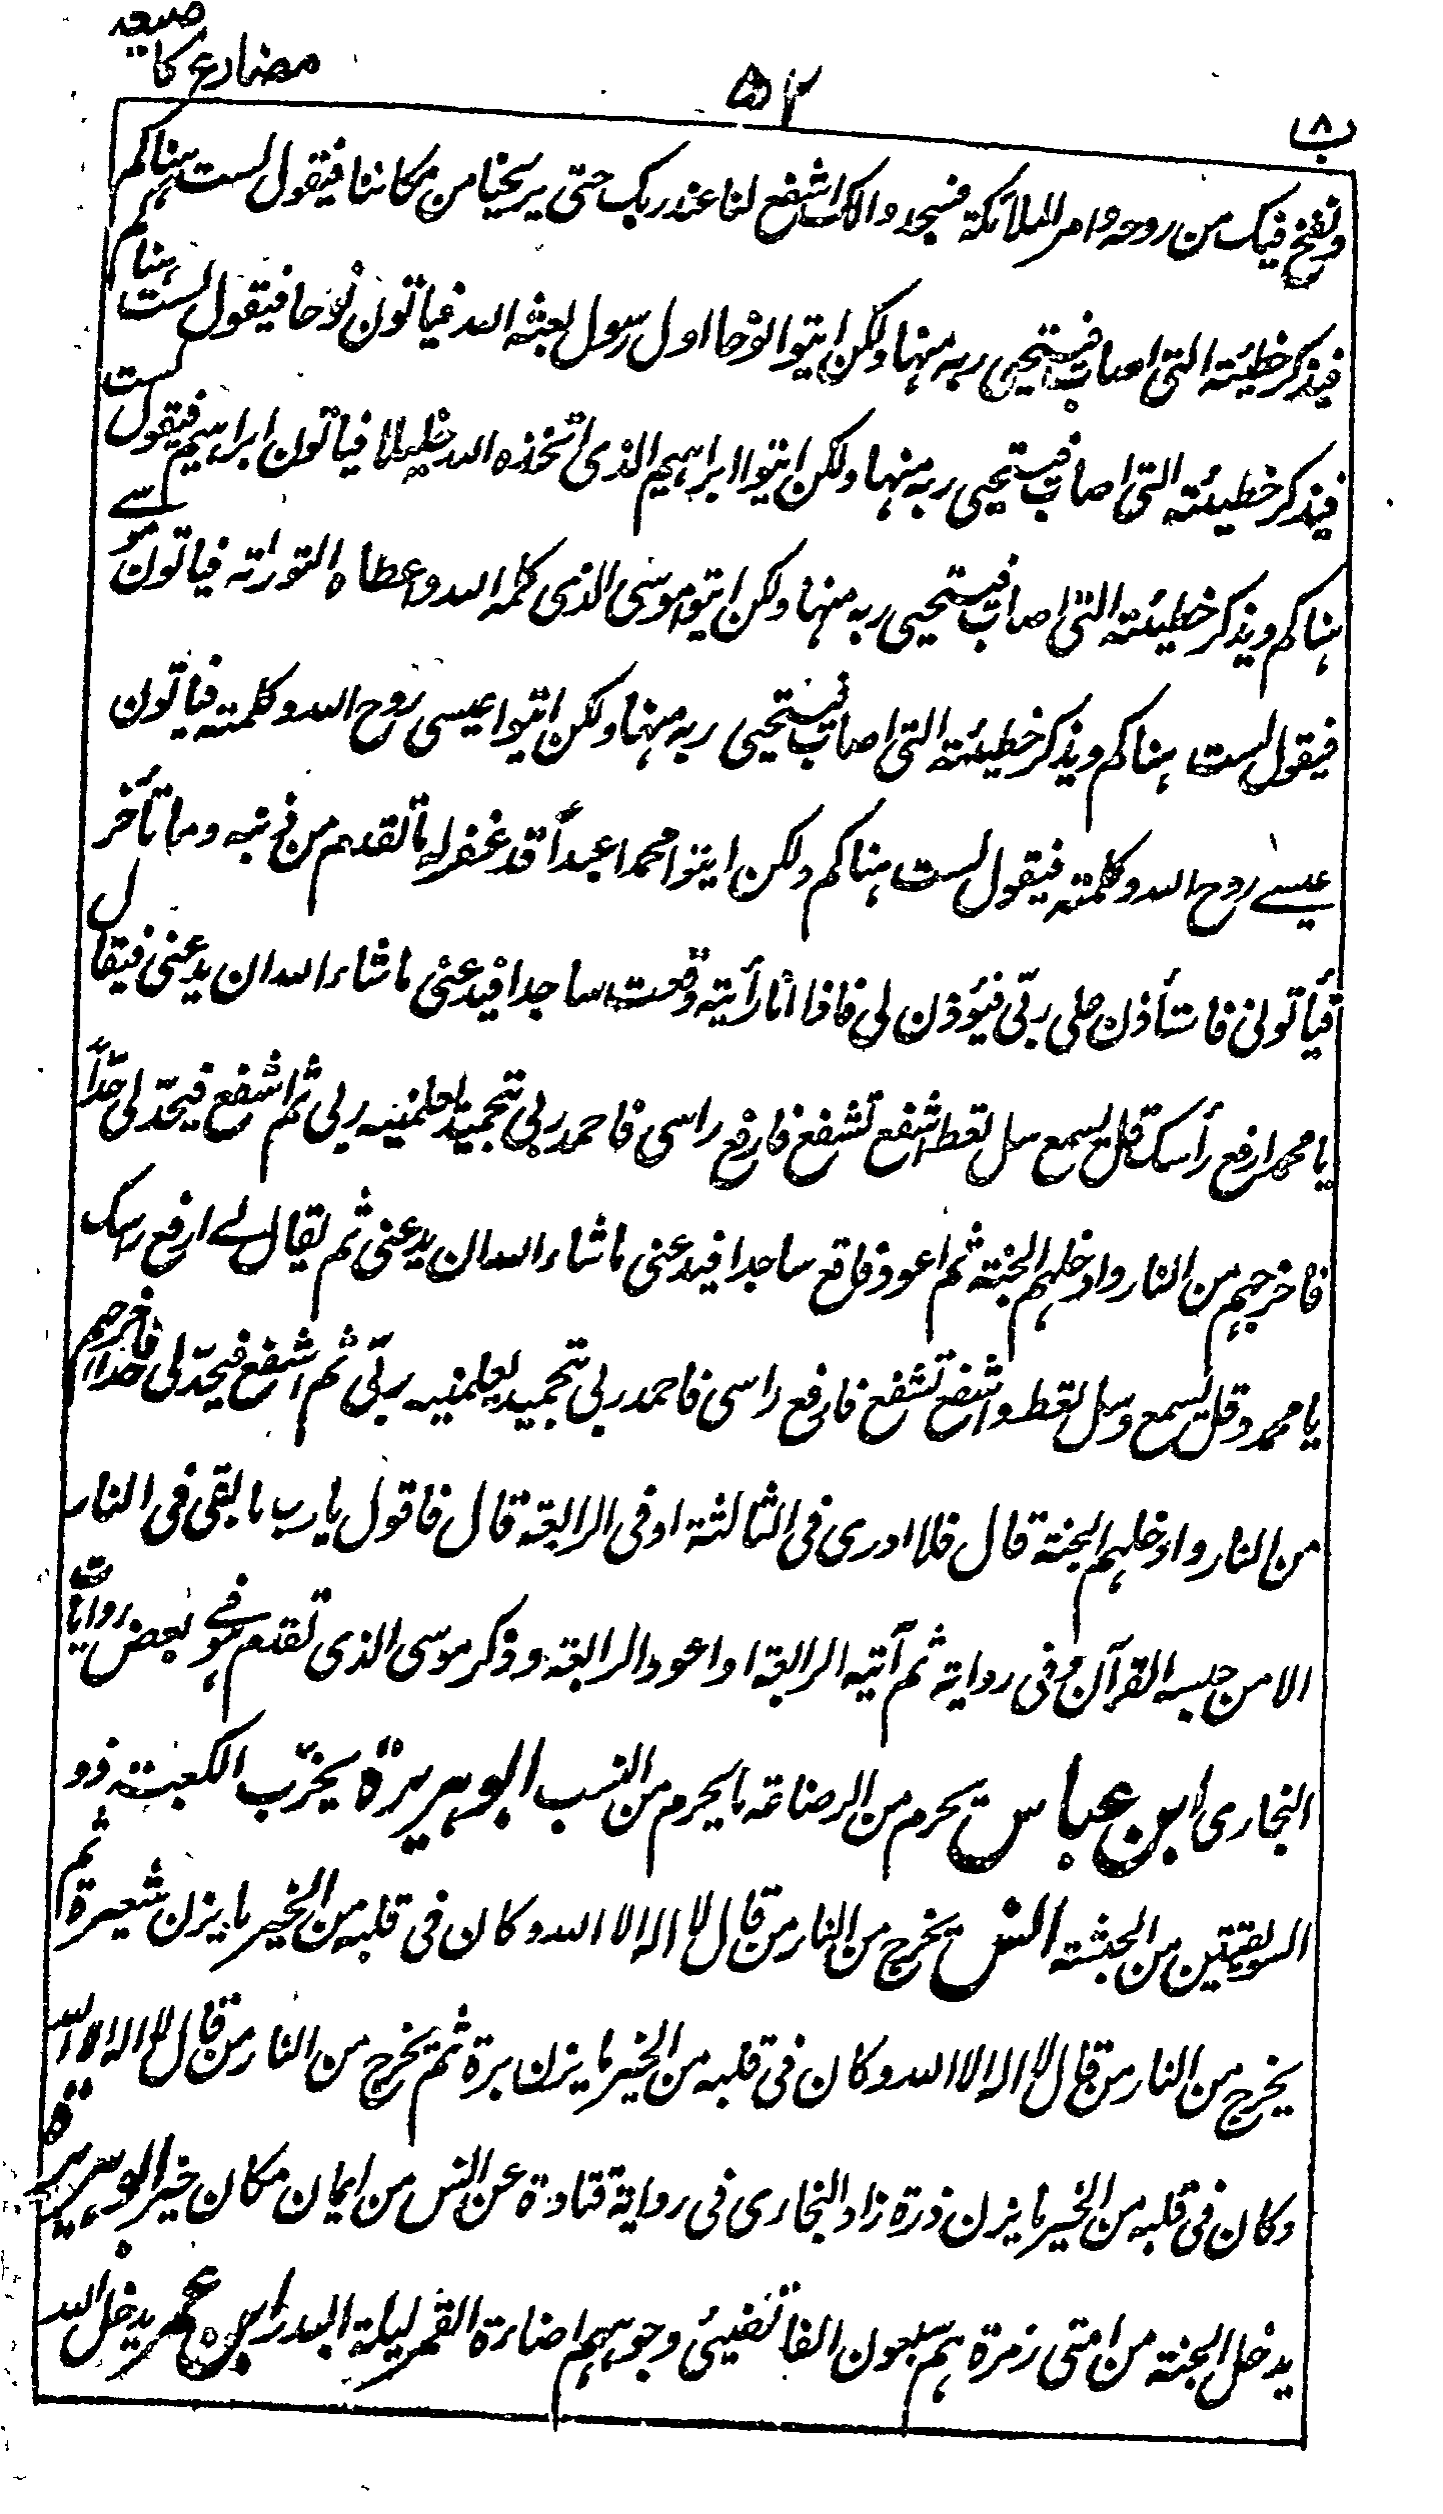 صیغہ
مضارع کا
۵۲
ب ۸
ونفخ فیک من روحہ وامر الملائکۃ فسجدوا لک اشفع لنا عند ربک حتی یریحنا من مکاننا فیقول لست ہناکم
فیذکر خطیئتہ التی اصاب فیستحیی ربہ منہا ولکن ایتوا نوحا اول رسول بعثہ اللہ فیاتون نوحا فیقول لست ہناکم
فیذکر خطیئتہ التی اصاب فیستحیی ربہ منہا ولکن ایتوا ابراہیم الذی اتخذہ اللہ خلیلا فیاتون ابراہیم فیقول لست
ہناکم ویذکر خطیئتہ التی اصاب فیستحیی ربہ منہا ولکن ایتوا موسی الذی کلمہ اللہ واعطاہ التوراتہ فیاتون موسے
فیقول لست ہناکم ویذکر خطیئتہ التی اصاب فیستحیی ربہ منہا ولکن ایتوا عیسی روح اللہ وکلمتہ فیاتون
عیسے روح اللہ وکلمتہ فیقول لست ہناکم ولکن ایتوا محمدا عبداً قد غفر لہ ما تقدم من ذنبہ وما تأخر
فیأتونی فاستأذن علی ربّی فیؤذن لی فاذا انا رأیتہ وقعت ساجدا فیدعنی ما شاء اللہ ان یدعنی فیقال
یا محمد ارفع رأسک قل یسمع سل تعط اشفع تشفع فارفع راسی فاحمد ربی بتحمید یعلمنیہ ربی ثم اشفع فیحدّ لی حدّاً
فاخرجہم من النار وادخلہم الجنۃ ثم اعود فاقع ساجدا فیدعنی ما شاء اللہ ان یدعنی ثم یقال لے ارفع راسک
یا محمد وقل یسمع وسل تعط واشفع تشفع فارفع راسی فاحمد ربی بتحمید یعلمنیہ ربّی ثم اشفع فیحدّ لی حدا فاخرجہم
من النار وادخلہم الجنۃ قال فلا ادری فی الثالثۃ او فی الرابعۃ قال فاقول یا رب ما بقی فی النار
الا من حبسہ القرآن وفی روایۃ ثم آتیہ الرابعۃ او اعود الرابعۃ وذکر موسی الذی تقدم ہو فے بعض روایات
البخاری ابن عباس یحرم من الرضاعۃ ما یحرم من النسب ابو ہریرۃ یخرّب الکعبۃ ذو
السویقتین من الحبشۃ انس یخرج من النار من قال لا الہ الا اللہ وکان فی قلبہ من الخیر ما یزن شعیرۃ ثم
یخرج من النار من قال لا الہ الا اللہ وکان فی قلبہ من الخیر ما یزن برۃ ثم یخرج من النار من قال لا الہ الا اللہ
وکان فی قلبہ من الخیر ما یزن ذرۃ زاد البخاری فی روایۃ قتادۃ عن انس من ایمان مکان خیر ابو ہریرۃ
یدخل الجنۃ من امتی زمرۃ ہم سبعون الفا تضیئ وجوہہم اضاءۃ القمر لیلۃ البدر ابن عمر یدخل اللہ